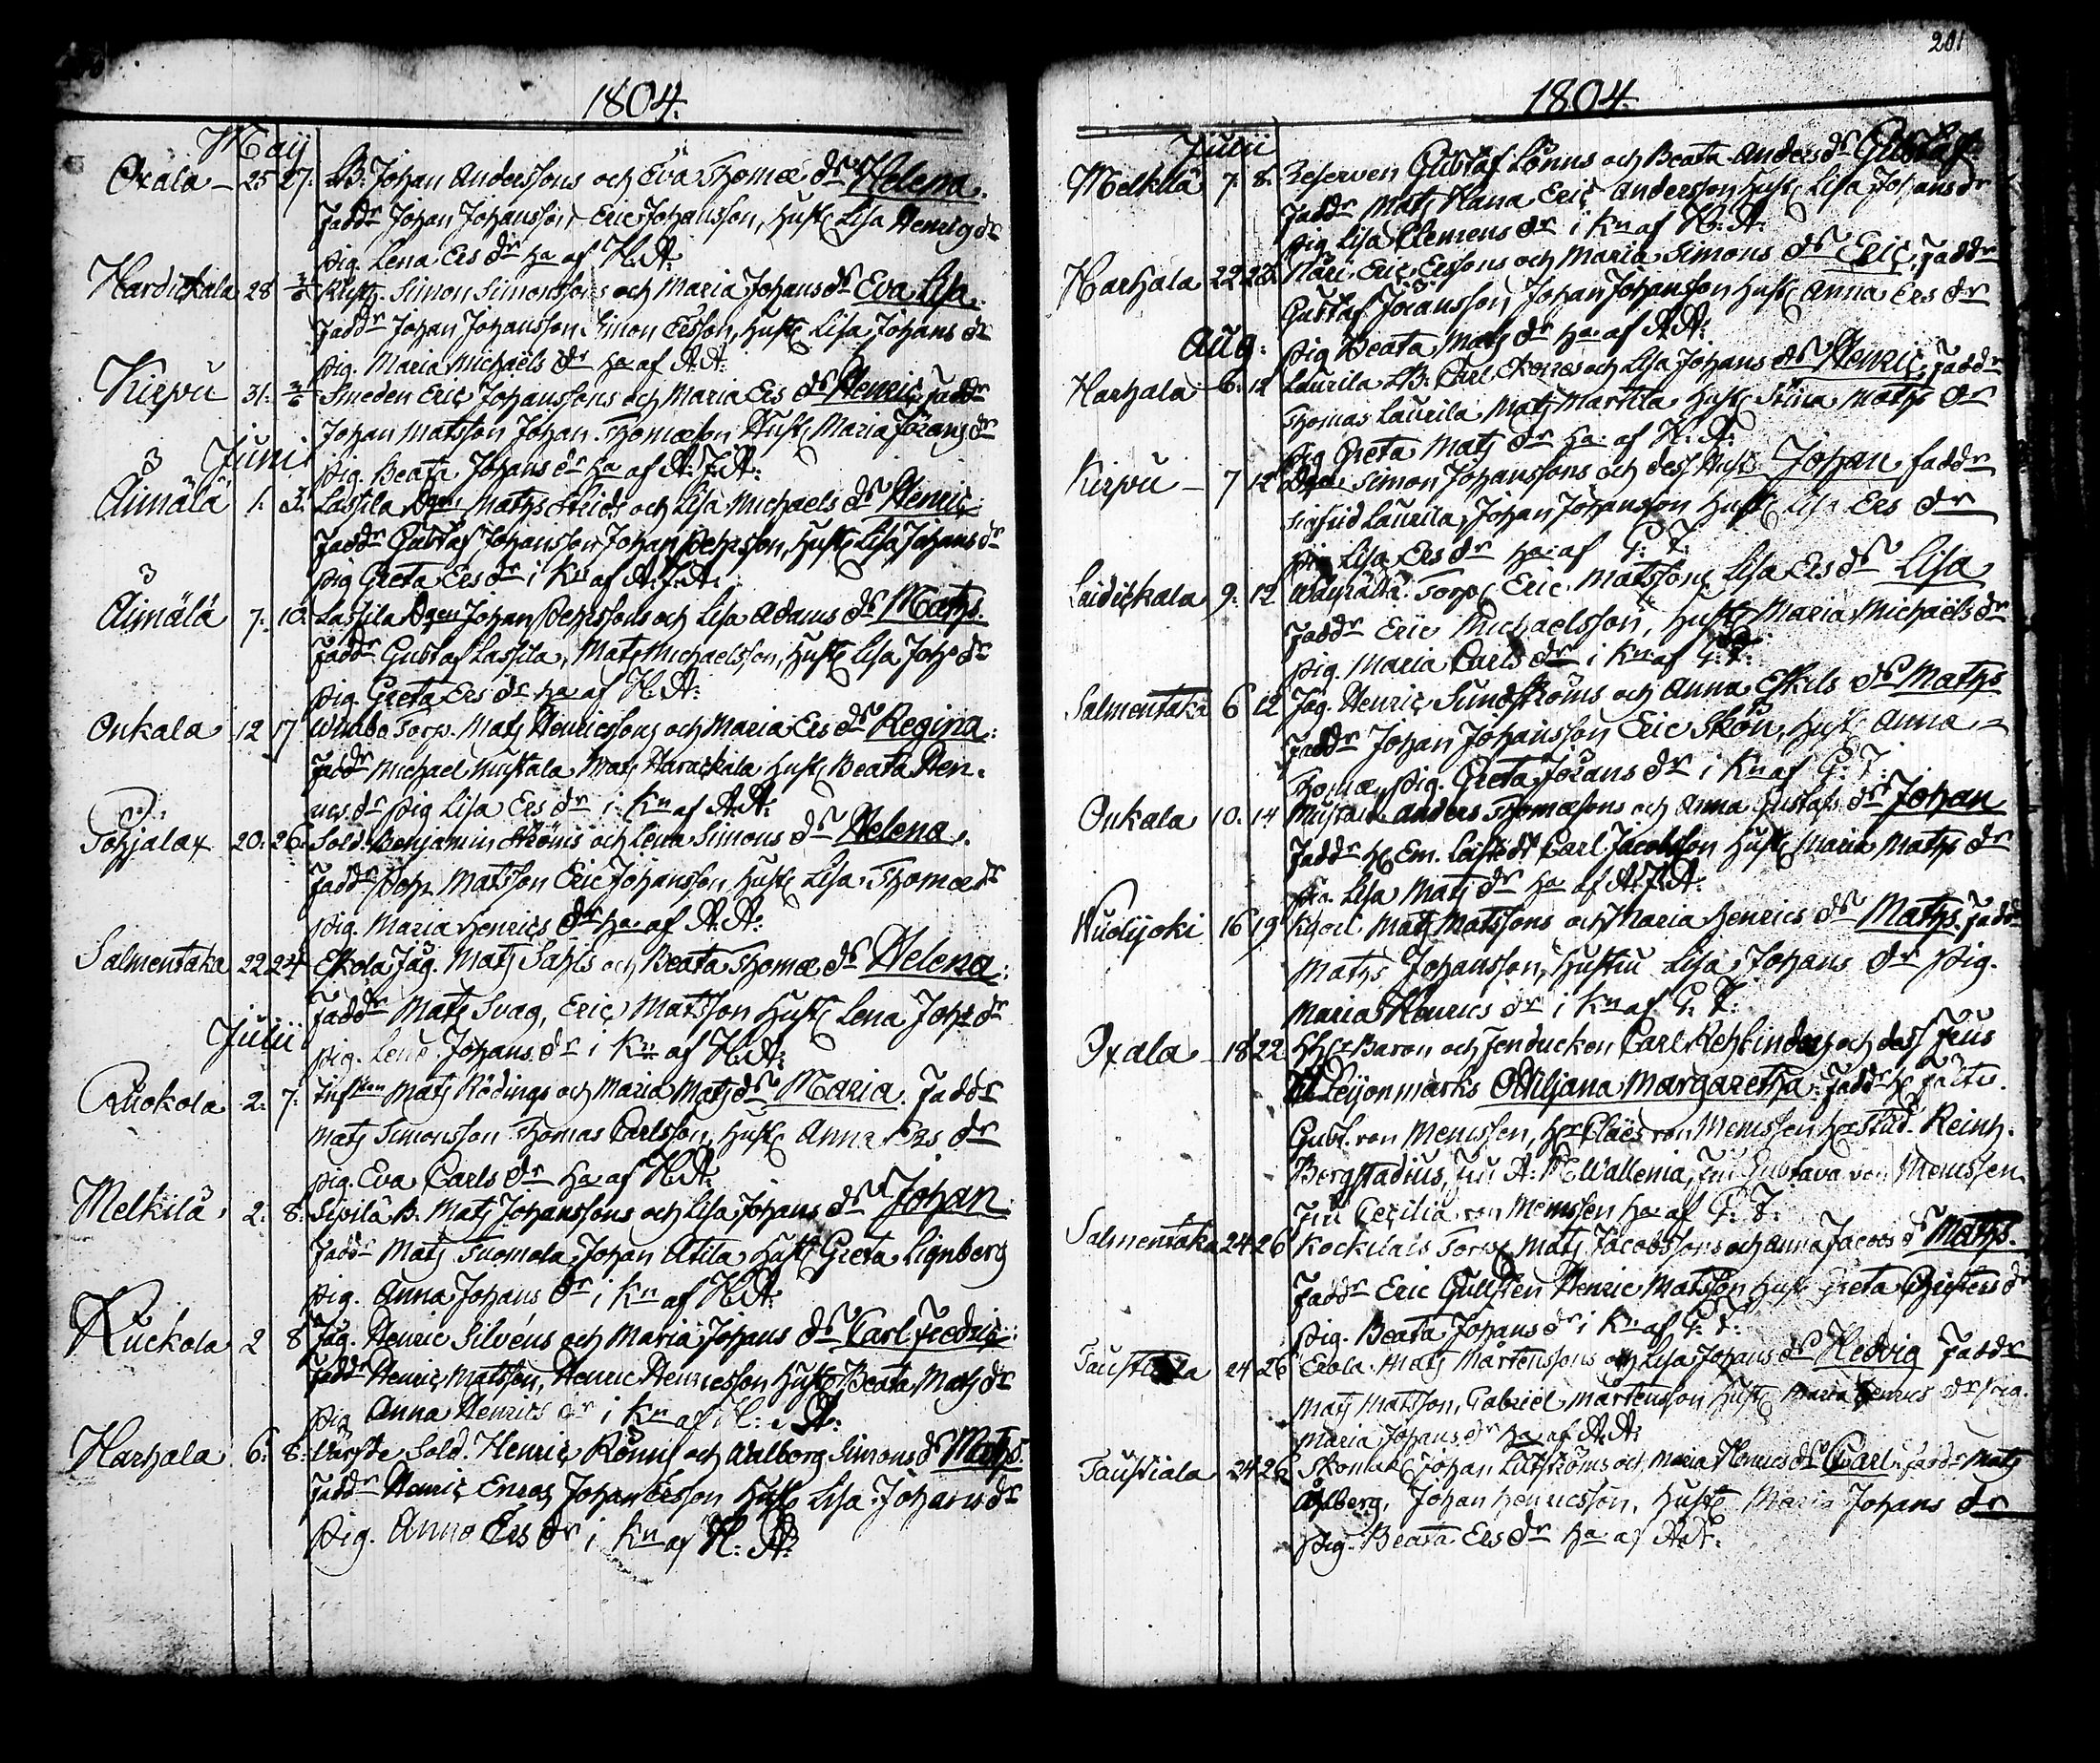 1804.
Maij
Oxala 25 27. LB: Johan Anderssons och Eva Thomæ dr Helena.
Faddr Johan Johansson, Eric Johansson, Hust Lisa Henrigs dr
pig. Lena Ers dr ha af H. A:
Hardickala 28 3/6 Simon Simonssons och Maria Johans dr Eva Lisa
Faddr Johan Johansson Simon Ersson, Hust Lisa Johans dr
pig. Maria Michaëls dr ha af A. A:
Kirpu 31. 3/6 Smeden Eric Johanssons och Maria Ers dr Henric, Faddr
Johan Matsson Johan Thomæson Hust Maria Jörans dr
Junii pig. Beata Johans dr ha af A. J. A:
Äimälä 1. 3. Lassila Matts och Lisa Michaels dr Henric
Faddr Gustaf Johansson Johan Pehrsson, Hust Lisa Johans dr
pig Greta Ers dr i Kn af A. J. A:
Äimälä 7. 10. Lassila Johan Pehrssons och Lisa Adams dr Matts.
Faddr Gustaf Lassila, Mats Michaelsson, Hust Lisa Joh dr
pig Greta Ers dr ha af H. A:
Onkala 12 17 Torp. Mats Henricssons och Maria Ers dr Regina:
Faddr Michael Mustala Mats Harackala Hust Beata Hen-
rics dr pig Lisa Ers dr i Kn af A. A:
Pohjala 20. 26. Sold. Benjamin Ströms och Lena Simons dr Helena.
Faddr Joh Matsson Eric Johansson Hust Lisa Thomæ dr
pig. Maria Henrics dr ha af A. A:
Salmentaka 22 24 Eskola Jäg. Mats Sahls och Beata Thomæ dr Helena:
Faddr Mats Svag, Eric Matsson Hust Lena Joh dr
Julii pig. Lena Johans dr i Kn af H. A:
Ruokola 2. 7. Mats Rödings och Maria Mats dr Maria. Faddr
Mats Simonsson Thomas Carlsson, Hust Anna Ers dr
pig. Eva Carls dr ha af H. A:
Melkilä 2. 8. Sipilä B. Mats Johanssons och Lisa Johans dr Johan
Faddr Mats Tuomola, Johan Atila Hust Greta Lignberg
pig. Anna Johans dr i Kn af H. A:
Ruokola 2 8 Jäg. Henric Silvéns och Maria Johans dr Carl Fredric
Faddr Henric Matsson, Henric Henricsson Hust Beata Mats dr
pig Anna Henrics dr i Kn af H: A:
Harhala 6. 8. Sold. Henric Rönns och Walborg Simons dr Matts.
Faddr Henric Eneas Johan Ersson Hust Lisa Johans dr
pig. Anna Ers dr i Kn af H: A:
201
1804.
Julii
Melkilä 7. 8. Reserven Gustaf Lönns och Beata Anders dr Gustaf
Faddr Mats Hana Eric Andersson Hust Lisa Johans dr
pig Lisa Clemens dr i Kn af H: A:
Harhala 22 23. Eric Erssons och Maria Simons dr Eric, Faddr
Gustaf Joransson, Johan Johansson Hust Anna Ers dr
Aug: pig Beata Mats dr ha af A. A:
Harhala 6. 12 Laurila LB: Carl och Lisa Johans dr Henric, Faddr
Thomas Laurila Mats Martila Hust Matts dr
pig Greta Mats dr ha af H. A:
Kirpu 7 12 Simon Johanssons och dess Hust Johan faddr
Sigfrid Laurila, Johan Johansson Hust Lisa Ers dr
pig Lisa Ers dr ha af G: T:
Laidickala 9. 12 Torp. Eric Matssons Lisa Ers dr Lisa
Faddr Eric Michaelsson, Hust Maria Michaëls dr
pig. Maria Carls dr i Kn af G: T:
Salmentaka 6 12 Jäg. Henric Sundströms och Anna Eskels dr Matts
Faddr Johan Johansson Eric Skön, Hust Anna
Thomæ, pig. Greta Jörans dr i Kn af G: T:
Onkala 10. 14 Mustala Anders Thomæsons och Anna Gustafs dr Johan
Faddr H Em. Carl Jacobsson Hust Maria Matts dr
pig. Lisa Mats dr ha af A. J. A:
Wuolijoki 16 19 Mats Matssons och Maria Henrics dr Matts. Fadd
Matts Johansson, Hustru Lisa Johans dr pig.
Maria Henrics dr i Kn af G. T:
Oxala 18 22 Baron och Carl Rehbinders och dess Frus
Leijonmarks Odiliana Margaretha. Faddr H
Gust. von Memssen, Hr Claës von Memssen Hr Stud. Reinh.
Bergstadius, fru A: Wallenia, fru Gustava von Memssen
Cecilia von Memssen ha af G. T:
Salmentaka 24 26 Kockilais Torp. Mats Jacobssons och Anna Jacobs d Matts.
Faddr Eric Gullsten Henric Matsson Hust Greta Christers dr
pig. Beata Johans dr i Kn af G. T:
24 26 Erola Mats Mårtenssons och Lisa Johans dr Hedvig Faddr
Mats Matsson, Gabriel Mårtensson Hust Maria Henrics dr pig.
Maria Johans dr ha af A. A:
Taustiala 24 26 Johan och Maria Henrics dr Carl Faddr Mats
Ahlberg, Johan Henricsson, Hust Maria Johans dr
pig. Beata Ers dr ha af A. A: